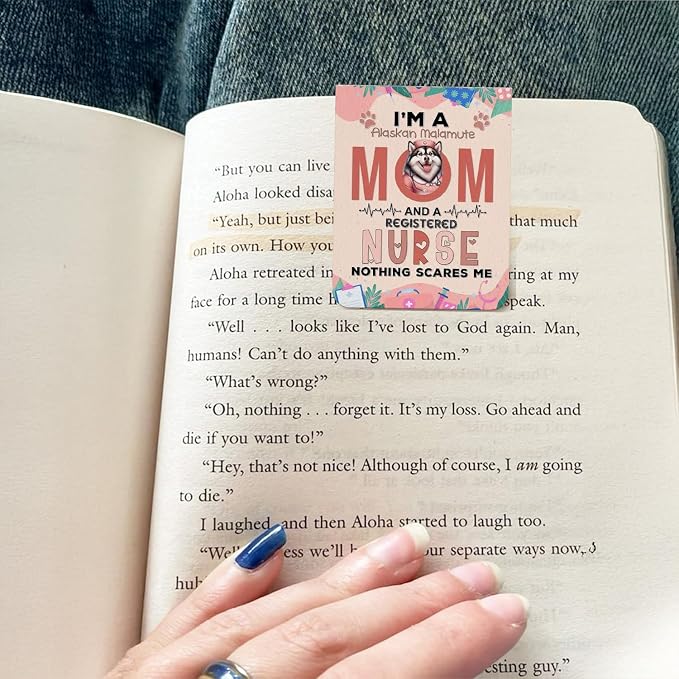 I'M A
Alaskan Malamute
MOM
AND A
REGISTERED
NURSE
NOTHING SCARES ME
“But you can live
Aloha looked disa
“Yeah, but just bei that much
on its own. How you
Aloha retreated in ring at my
face for a long time h speak.
“Well . . . looks like I’ve lost to God again. Man,
humans! Can’t do anything with them.”
“What’s wrong?”
“Oh, nothing . . . forget it. It’s my loss. Go ahead and
die if you want to!”
“Hey, that’s not nice! Although of course, I am going
to die.”
I laughed, and then Aloha started to laugh too.
“Well ess we’ll our separate ways now,
hub
esting guy.”